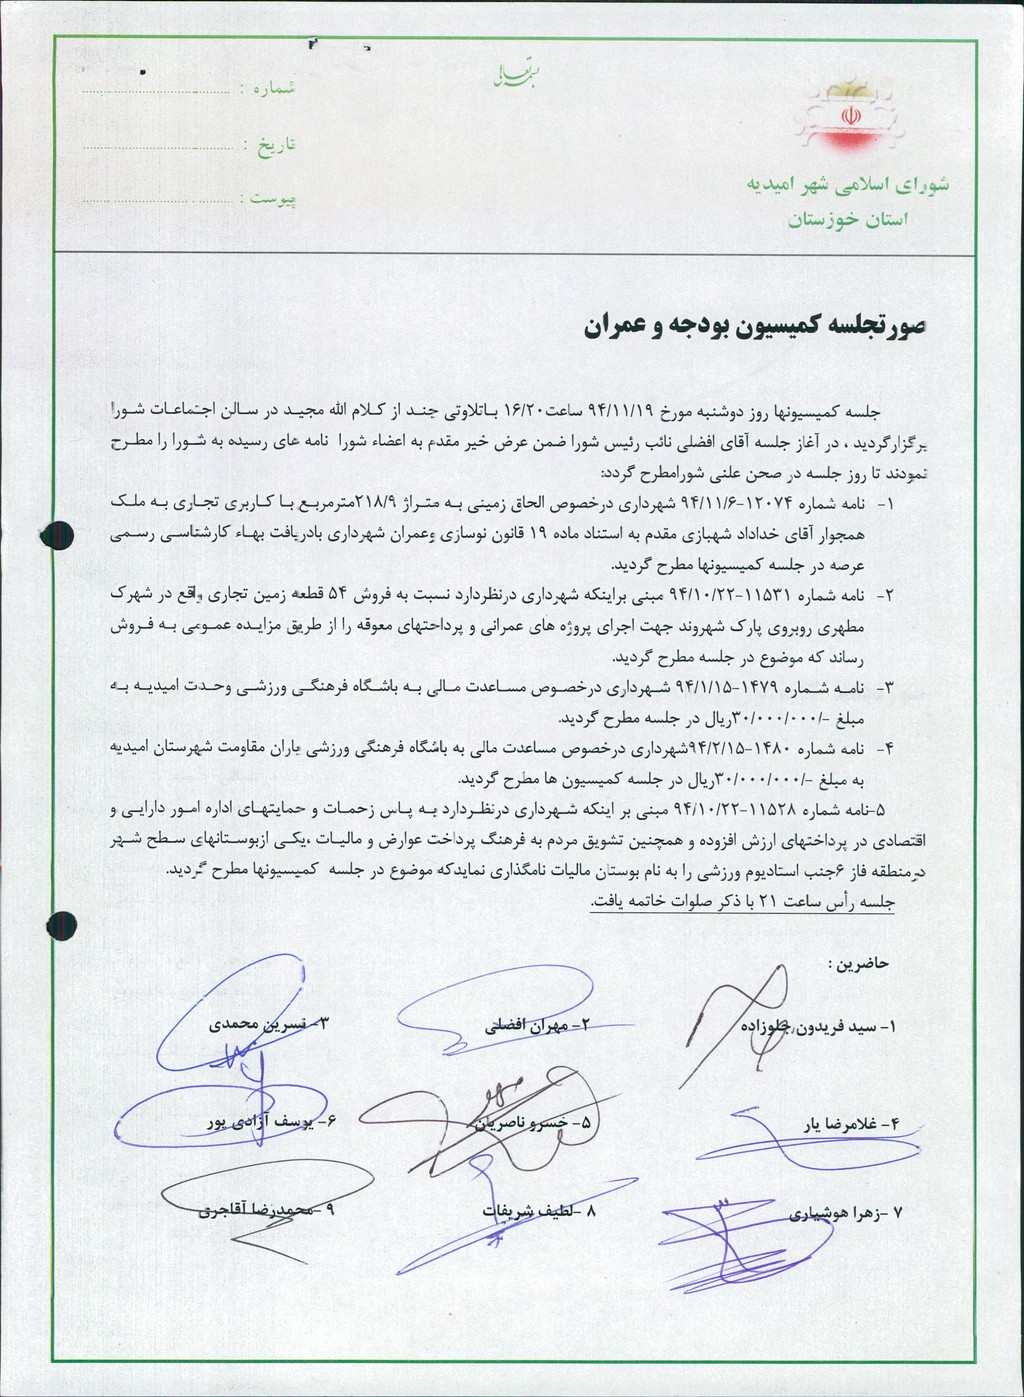 بسمه تعالی
شماره :
تاریخ :
پیوست :
شورای اسلامی شهر امیدیه
استان خوزستان
صورتجلسه کمیسیون بودجه و عمران
جلسه کمیسیونها روز دوشنبه مورخ ۹۴/۱۱/۱۹ ساعت۱۶/۲۰ باتلاوتی چند از کلام الله مجید در سالن اجتماعات شورا
برگزارگردید ، در آغاز جلسه آقای افضلی نائب رئیس شورا ضمن عرض خیر مقدم به اعضاء شورا نامه های رسیده به شورا را مطرح
نمودند تا روز جلسه در صحن علنی شورامطرح گردد:
۱- نامه شماره ۱۲۰۷۴-۹۴/۱۱/۶ شهرداری درخصوص الحاق زمینی به متراژ ۲۱۸/۹مترمربع با کاربری تجاری به ملک
همجوار آقای خداداد شهبازی مقدم به استناد ماده ۱۹ قانون نوسازی وعمران شهرداری بادریافت بهاء کارشناسی رسمی
عرصه در جلسه کمیسیونها مطرح گردید.
۲- نامه شماره ۱۱۵۳۱-۹۴/۱۰/۲۲ مبنی براینکه شهرداری درنظردارد نسبت به فروش ۵۴ قطعه زمین تجاری واقع در شهرک
مطهری روبروی پارک شهروند جهت اجرای پروژه های عمرانی و پرداختهای معوقه را از طریق مزایده عمومی به فروش
رساند که موضوع در جلسه مطرح گردید.
۳- نامه شماره ۱۴۷۹-۹۴/۱/۱۵ شهرداری درخصوص مساعدت مالی به باشگاه فرهنگی ورزشی وحدت امیدیه به
مبلغ -/۳۰/۰۰۰/۰۰۰ریال در جلسه مطرح گردید.
۴- نامه شماره ۱۴۸۰-۹۴/۲/۱۵شهرداری درخصوص مساعدت مالی به باشگاه فرهنگی ورزشی یاران مقاومت شهرستان امیدیه
به مبلغ -/۳۰/۰۰۰/۰۰۰ریال در جلسه کمیسیون ها مطرح گردید.
۵-نامه شماره ۱۱۵۲۸-۹۴/۱۰/۲۲ مبنی بر اینکه شهرداری درنظردارد به پاس زحمات و حمایتهای اداره امور دارایی و
اقتصادی در پرداختهای ارزش افزوده و همچنین تشویق مردم به فرهنگ پرداخت عوارض و مالیات ،یکی ازبوستانهای سطح شهر
درمنطقه فاز ۶جنب استادیوم ورزشی را به نام بوستان مالیات نامگذاری نمایدکه موضوع در جلسه کمیسیونها مطرح گردید.
جلسه رأس ساعت ۲۱ با ذکر صلوات خاتمه یافت.
حاضرین :
۱- سید فریدون جلوزاده ۲- مهران افضلی ۳- نسرین محمدی
۴- غلامرضا یار ۵- خسرو ناصریان ۶- یوسف آزادی پور
۷ -زهرا هوشیاری ۸ -لطیف شریفات ۹ -محمدرضا آقاجری